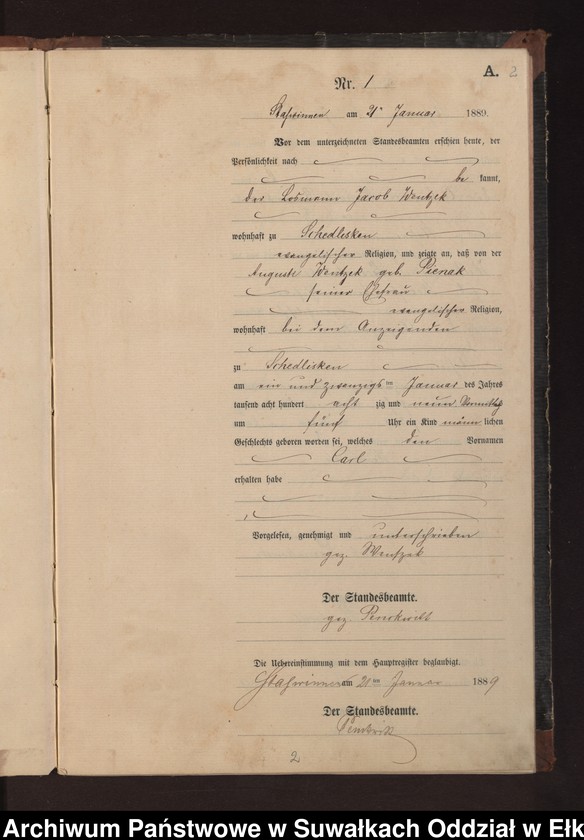 A. 2
Nr. 1
am 21ten Januar 1889.
Vor dem unterzeichneten Standesbeamten erschien heute, der
Persönlichkeit nach
bekannt,
der Losmann Jacob Wentzek
wohnhaft zu Schedlisken
evangelischer Religion, und zeigte an, daß von der
Auguste Wentzek geb. Pienak
seiner Ehefrau
evangelischer Religion,
wohnhaft bei dem Anzeigenden
zu Schedlisken
am ein und zwanzigsten Januar des Jahres
tausend acht hundert acht zig und neun Vormittag
um fünf Uhr ein Kind männlichen
Geschlechts geboren worden sei, welches den Vornamen
Carl
erhalten habe
Vorgelesen, genehmigt und unterschrieben
gez. Wentzek
Der Standesbeamte.
gez.
Die Uebereinstimmung mit dem Hauptregister beglaubigt.
am 21ten Januar 1889
Der Standesbeamte.
2
Archiwum Państwowe w Suwałkach Oddział w Ełk